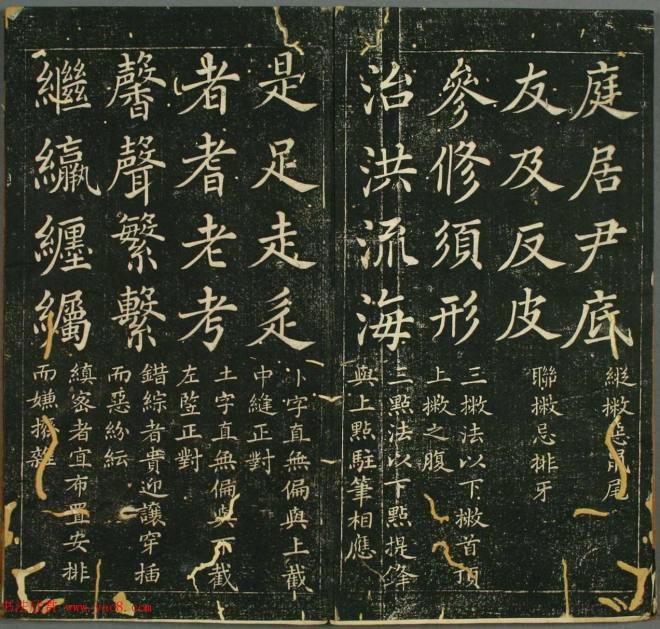 庭居尹底
縱撇忌鼠尾
友及反皮
聯撇忌排牙
參修須形
三撇法以下撇首頂
上撇之腹
治洪流海
三點法以下點提鋒
與上點駐筆相應
是足走辵
卜字直無偏與上截
中縫正對
者耆老考
土字直無偏與下截
左豎正對
馨聲繁繫
錯綜者貴迎讓穿插
而惡紛紜
繼纛纏纜
縝密者宜布置安排
而嫌雜
www.yac8.com